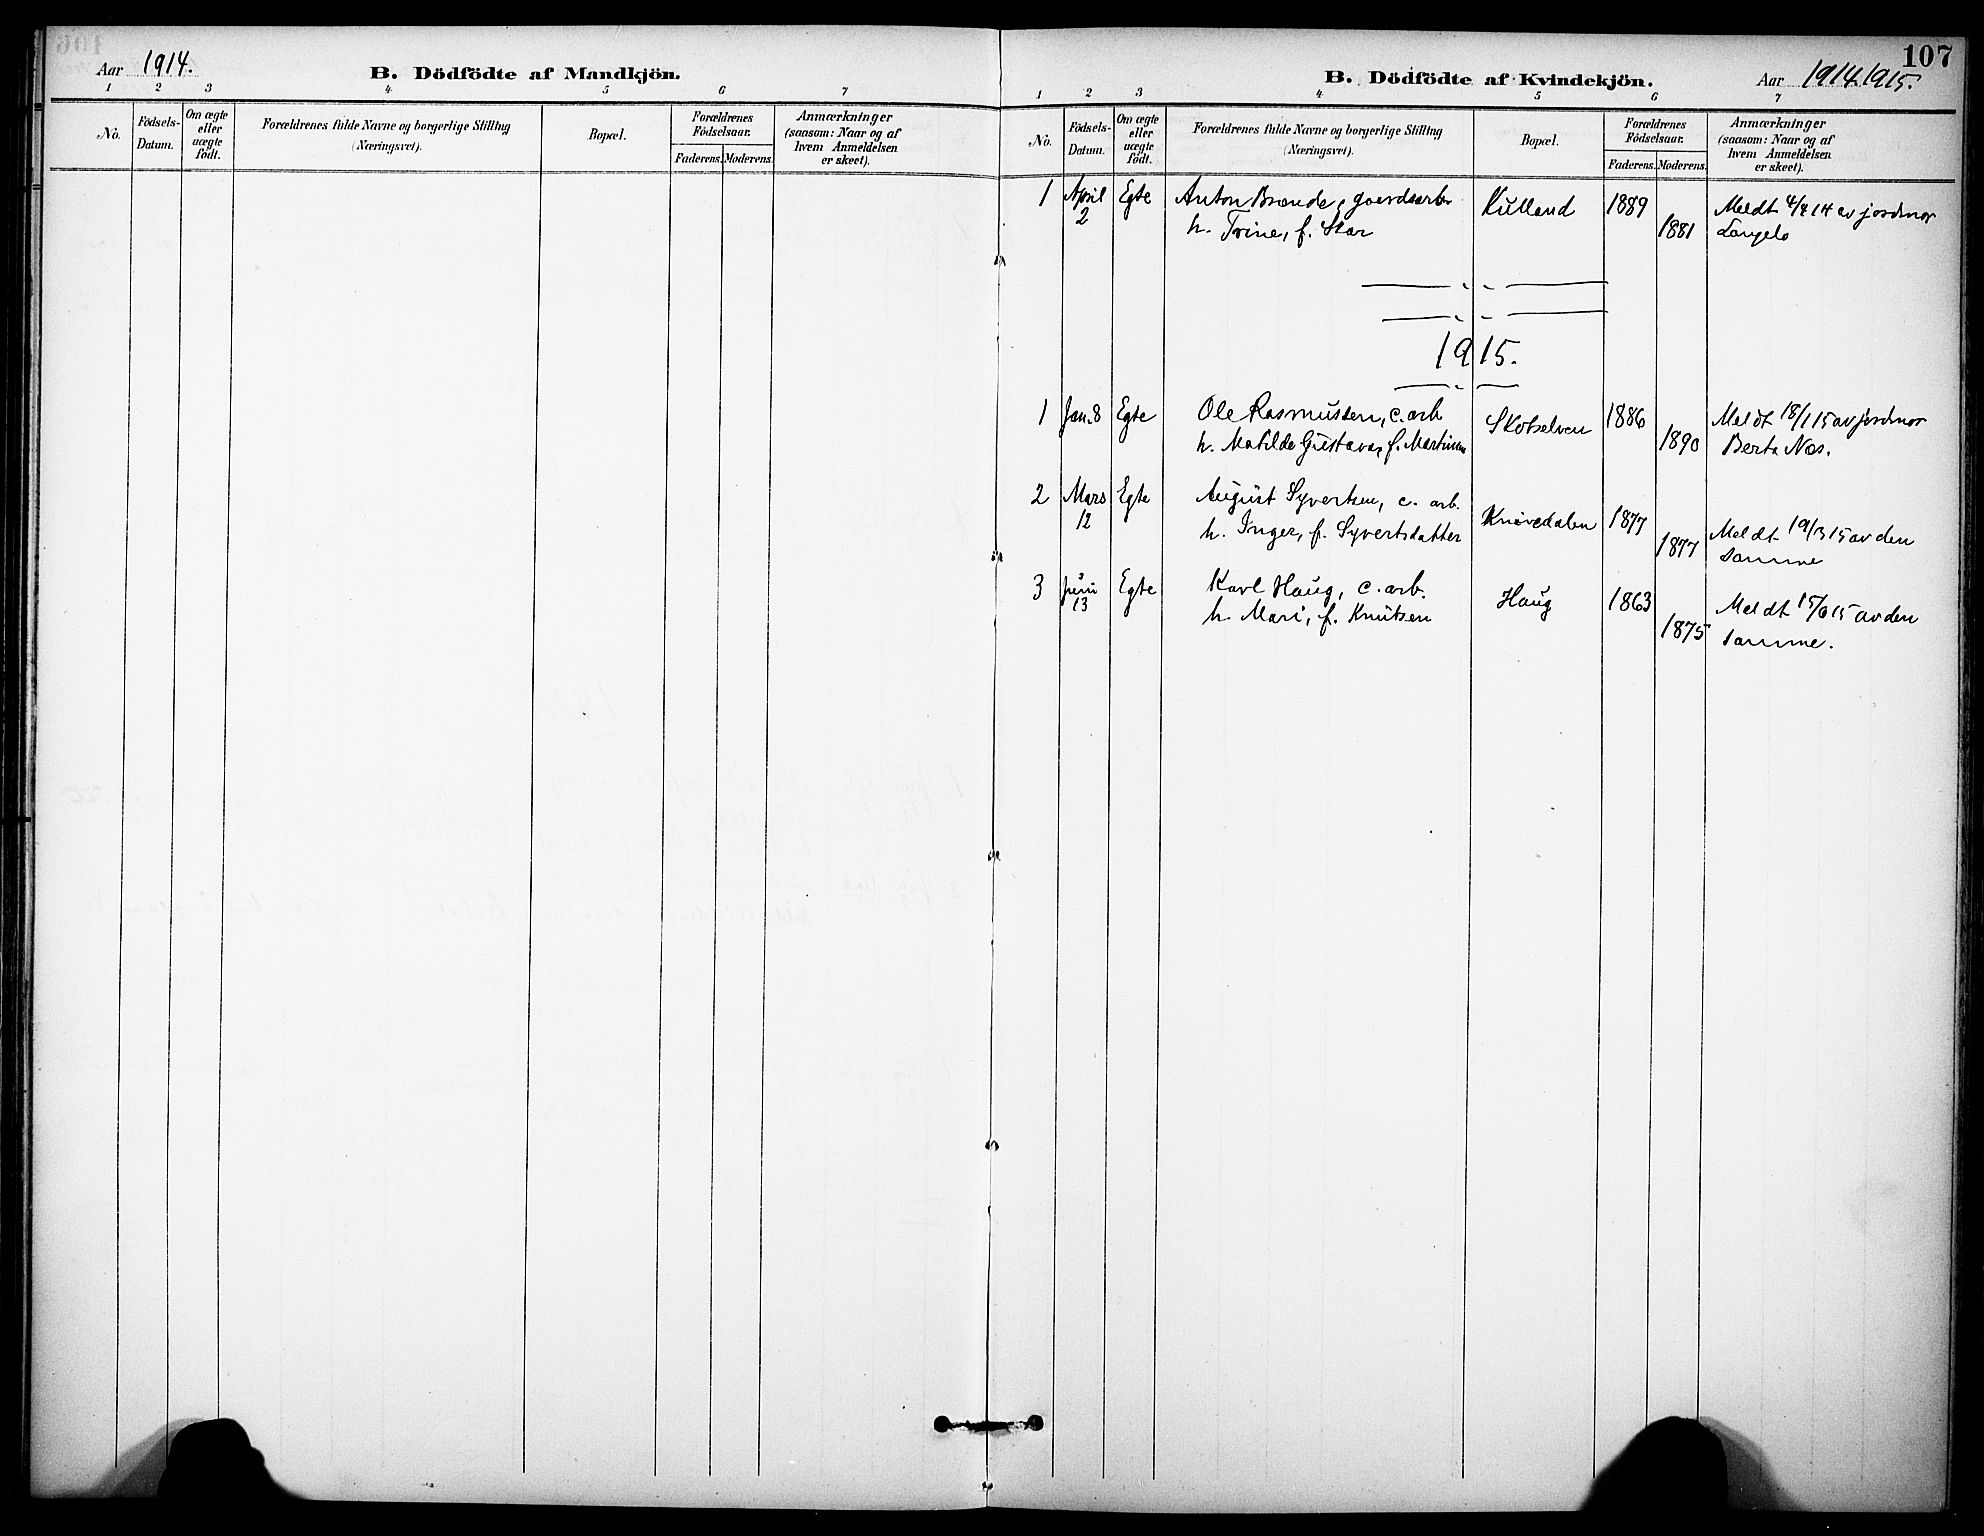 Aar 1914.
B. Dödfödte af Mandkjön.
1 2 3 4 5 6 7
No.
Födsels-
Datum.
Om ægte
eller
uægte
födt.
Forældrenes fulde Navne og borgerlige Stilling
(Næringsvei).
Bopæl.
Forældrenes
Födselsaar.
Faderens. Moderens.
Anmærkninger
(saasom: Naar og af
hvem Anmeldelsen
er skeet).
107
B. Dödfödte af Kvindekjön.
Aar 1914.1915.
1 2 3 4 5 6 7
No.
Födsels-
Datum.
Om ægte
eller
uægte
födt.
Forældrenes fulde Navne og borgerlige Stilling
(Næringsvei).
Bopæl.
Forældrenes
Födselsaar.
Faderens. Moderens.
Anmærkninger
(saasom: Naar og af
hvem Anmeldelsen
er skeet).
1 April Egte Anton Brænde, gaardsarb. 1889 Meldt 4/4 14 av jordmor
2 h. Trine, f. 1881 Langelo
1915.
1 Jan. 8 Egte Ole Rasmussen, c. arb. Skotselven 1886 Meldt 18/1 15 av jordmor
h. Matilde Gustava, f. Martinsen 1890 Berta Næs.
2 Mars Egte August Syvertsen, c. arb. Knivedalen 1877
12 h. Inger, f. Syvertsdatter 1877 Meldt 19/3 15 av den
samme
3 Juni Egte Karl Haug, c. arb. Haug 1863 Meldt 15/6 15 av den
13 h. Mari, f. Knutsen 1875 samme.